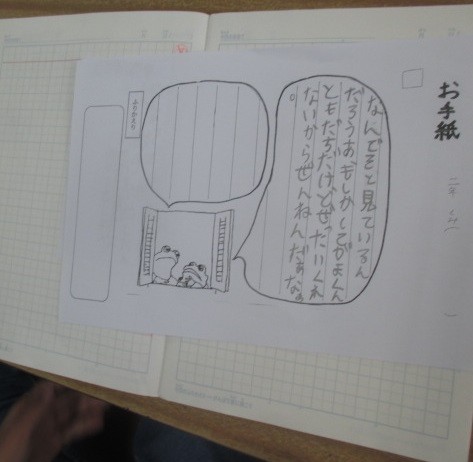 お手紙
二年 くみ( )
なんでそと見ているん
だろうお、もしかしてがまくん
ともだちだけどぜったいくれ
ないからぜんねんだぁなぁ
。
ふりかえり